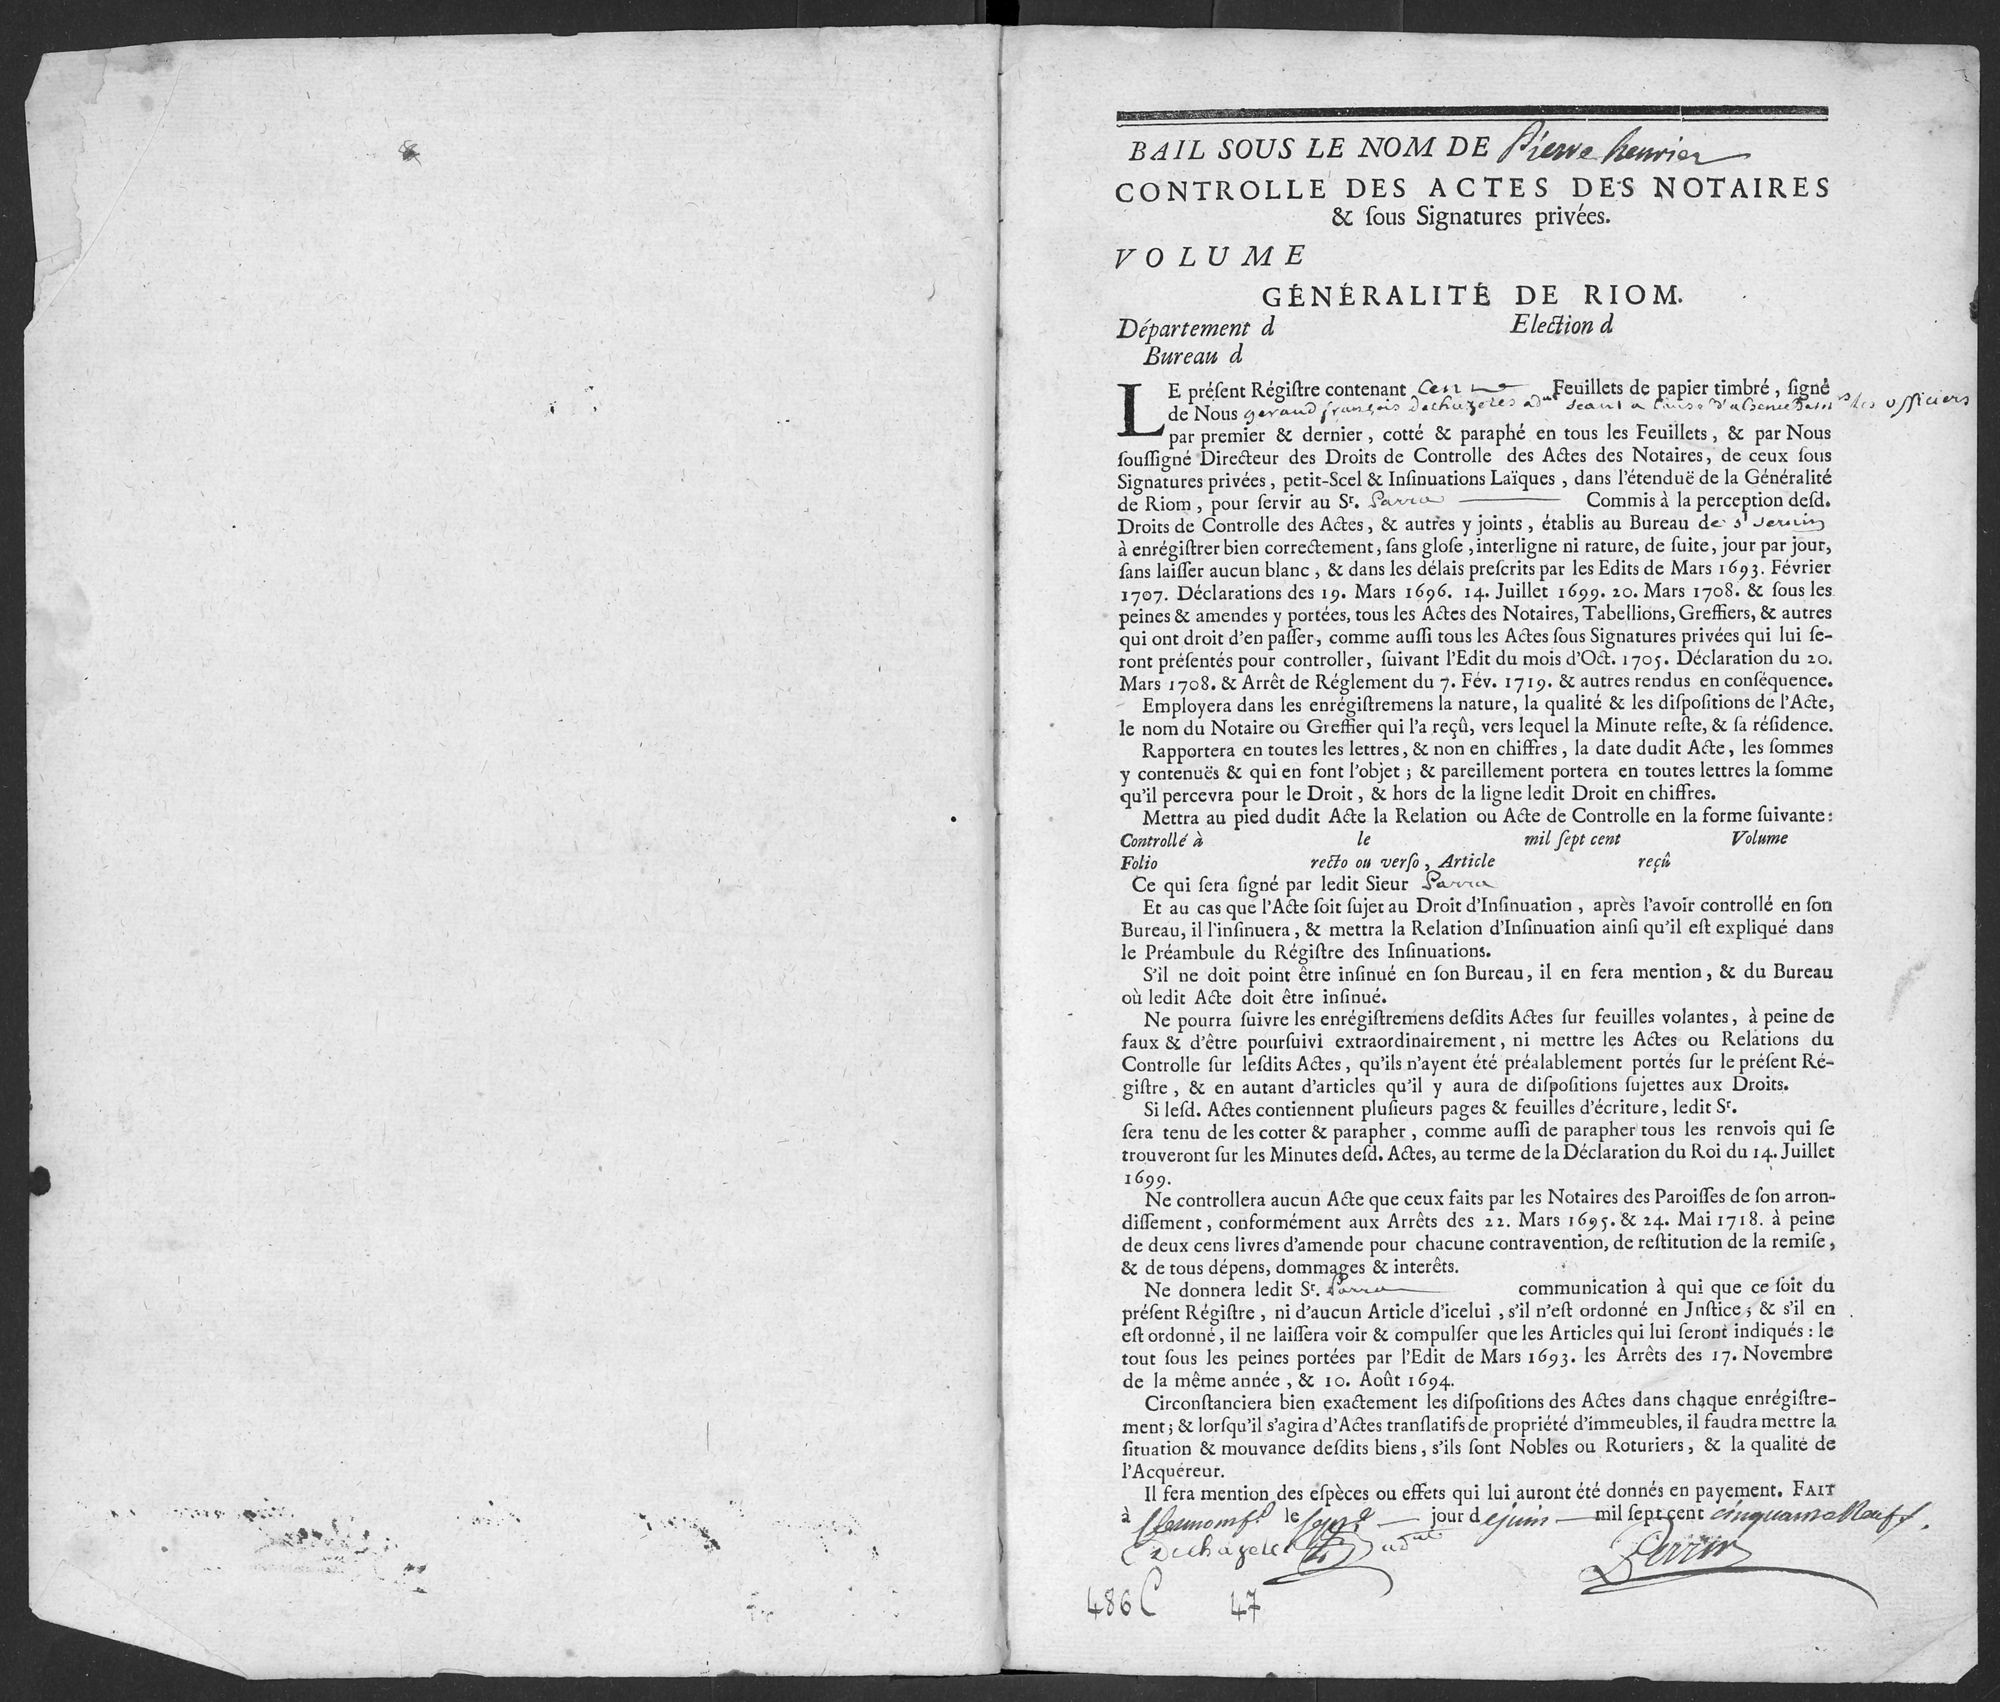 BAIL SOUS LE NOM DE Pierre henriet
CONTROLLE DES ACTES DES NOTAIRES
& ſous Signatures privées.
VOLUME
GÉNÉRALITÉ DE RIOM.
Département d Election d
Bureau d
LE préſent Régiſtre contenant Feuillets de papier timbré, ſigné
de Nous gerand françois Dechazeles seant a cause d'absence des officiers
par premier & dernier, cotté & paraphé en tous les Feuillets, & par Nous
ſouſſigné Directeur des Droits de Controlle des Actes des Notaires, de ceux ſous
Signatures privées, petit-Scel & Inſinuations Laïques, dans l'étenduë de la Généralité
de Riom, pour ſervir au Sr. Parra Commis à la perception deſd.
Droits de Controlle des Actes, & autres y joints, établis au Bureau de st
à enrégiſtrer bien correctement, ſans gloſe, interligne ni rature, de ſuite, jour par jour,
ſans laiſſer aucun blanc, & dans les délais preſcrits par les Edits de Mars 1693. Février
1707. Déclarations des 19. Mars 1696. 14. Juillet 1699. 20. Mars 1708. & ſous les
peines & amendes y portées, tous les Actes des Notaires, Tabellions, Greffiers, & autres
qui ont droit d'en paſſer, comme auſſi tous les Actes ſous Signatures privées qui lui ſe-
ront préſentés pour controller, ſuivant l'Edit du mois d'Oct. 1705. Déclaration du 20.
Mars 1708. & Arrêt de Réglement du 7. Fév. 1719. & autres rendus en conſéquence.
Employera dans les enrégiſtremens la nature, la qualité & les diſpoſitions de l'Acte,
le nom du Notaire ou Greffier qui l'a reçû, vers lequel la Minute reſte, & ſa réſidence.
Rapportera en toutes les lettres, & non en chiffres, la date dudit Acte, les ſommes
y contenuës & qui en font l'objet; & pareillement portera en toutes lettres la ſomme
qu'il percevra pour le Droit, & hors de la ligne ledit Droit en chiffres.
Mettra au pied dudit Acte la Relation ou Acte de Controlle en la forme ſuivante:
Controllé à le mil ſept cent Volume
Folio recto ou verſo, Article reçû
Ce qui ſera ſigné par ledit Sieur Parra
Et au cas que l'Acte ſoit ſujet au Droit d'Inſinuation, après l'avoir controllé en ſon
Bureau, il l'inſinuera, & mettra la Relation d'Inſinuation ainſi qu'il eſt expliqué dans
le Préambule du Régiſtre des Inſinuations.
S'il ne doit point être inſinué en ſon Bureau, il en fera mention, & du Bureau
où ledit Acte doit être inſinué.
Ne pourra ſuivre les enrégiſtremens deſdits Actes ſur feuilles volantes, à peine de
faux & d'être pourſuivi extraordinairement, ni mettre les Actes ou Relations du
Controlle ſur leſdits Actes, qu'ils n'ayent été préalablement portés ſur le préſent Ré-
giſtre, & en autant d'articles qu'il y aura de diſpoſitions ſujettes aux Droits.
Si leſd. Actes contiennent pluſieurs pages & feuilles d'écriture, ledit Sr.
ſera tenu de les cotter & parapher, comme auſſi de parapher tous les renvois qui ſe
trouveront ſur les Minutes deſd. Actes, au terme de la Déclaration du Roi du 14. Juillet
1699.
Ne controllera aucun Acte que ceux faits par les Notaires des Paroiſſes de ſon arron-
diſſement, conformément aux Arrêts des 22. Mars 1695. & 24. Mai 1718. à peine
de deux cens livres d'amende pour chacune contravention, de reſtitution de la remiſe,
& de tous dépens, dommages & interêts.
Ne donnera ledit Sr. Parra communication à qui que ce ſoit du
préſent Régiſtre, ni d'aucun Article d'icelui, s'il n'eſt ordonné en Juſtice; & s'il en
eſt ordonné, il ne laiſſera voir & compulſer que les Articles qui lui ſeront indiqués: le
tout ſous les peines portées par l'Edit de Mars 1693. les Arrêts des 17. Novembre
de la même année, & 10. Août 1694.
Circonſtanciera bien exactement les diſpoſitions des Actes dans chaque enrégiſtre-
ment; & lorſqu'il s'agira d'Actes tranſlatifs de propriété d'immeubles, il faudra mettre la
ſituation & mouvance deſdits biens, s'ils ſont Nobles ou Roturiers, & la qualité de
l'Acquéreur.
Il fera mention des eſpèces ou effets qui lui auront été donnés en payement. FAIT
à Clermontfd le jour dejuin mil ſept cent cinquante Neuf.
Dechazeles Perrin
486 C 47